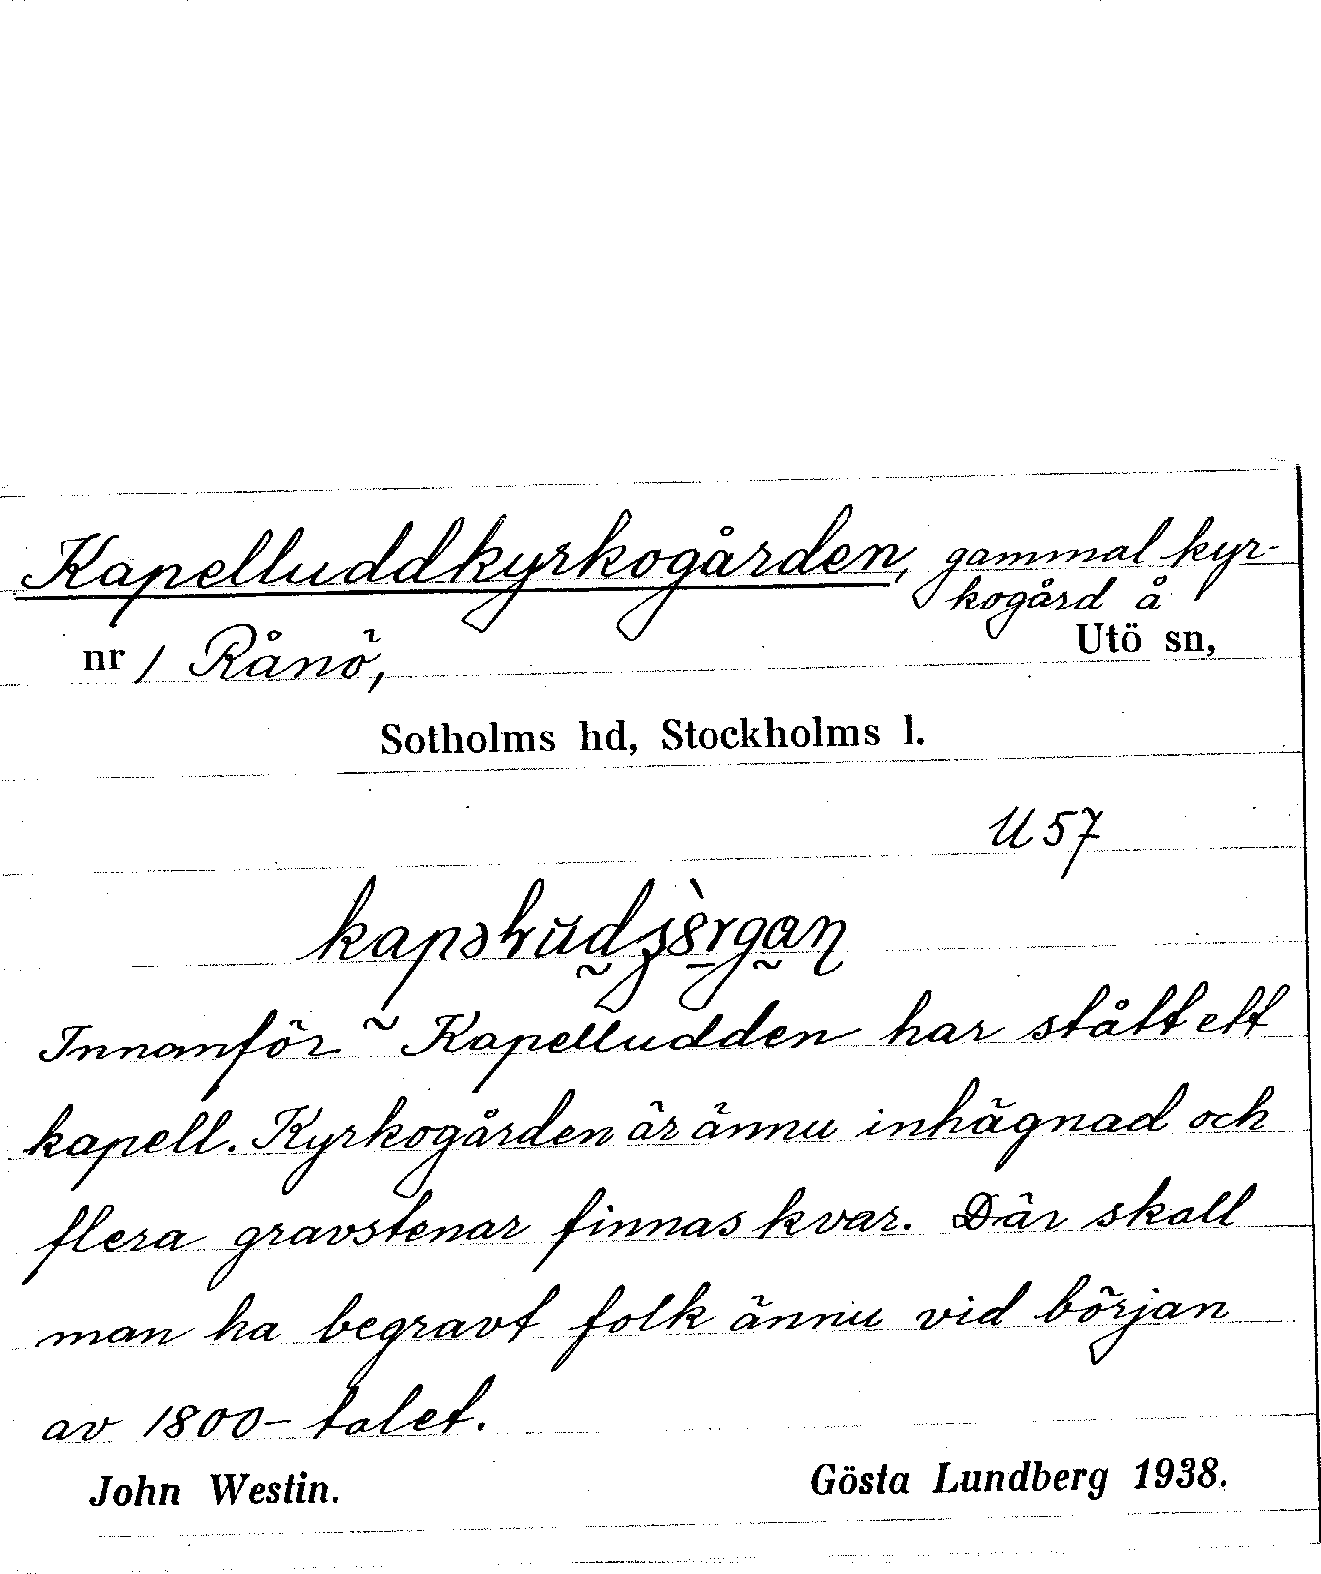 Kapelluddkyrkogården, gammal kyr-
kogård å
nr 1 Rånö, Utö sn,
Sotholms hd, Stockholms l.
U 57
Innanför Kapelludden har stått ett
kapell. Kyrkogården är ännu inhägnad och
flera gravstenar finnas kvar. Där skall
man ha begravt folk ännu vid början
av 1800-talet.
John Westin. Gösta Lundberg 1938.